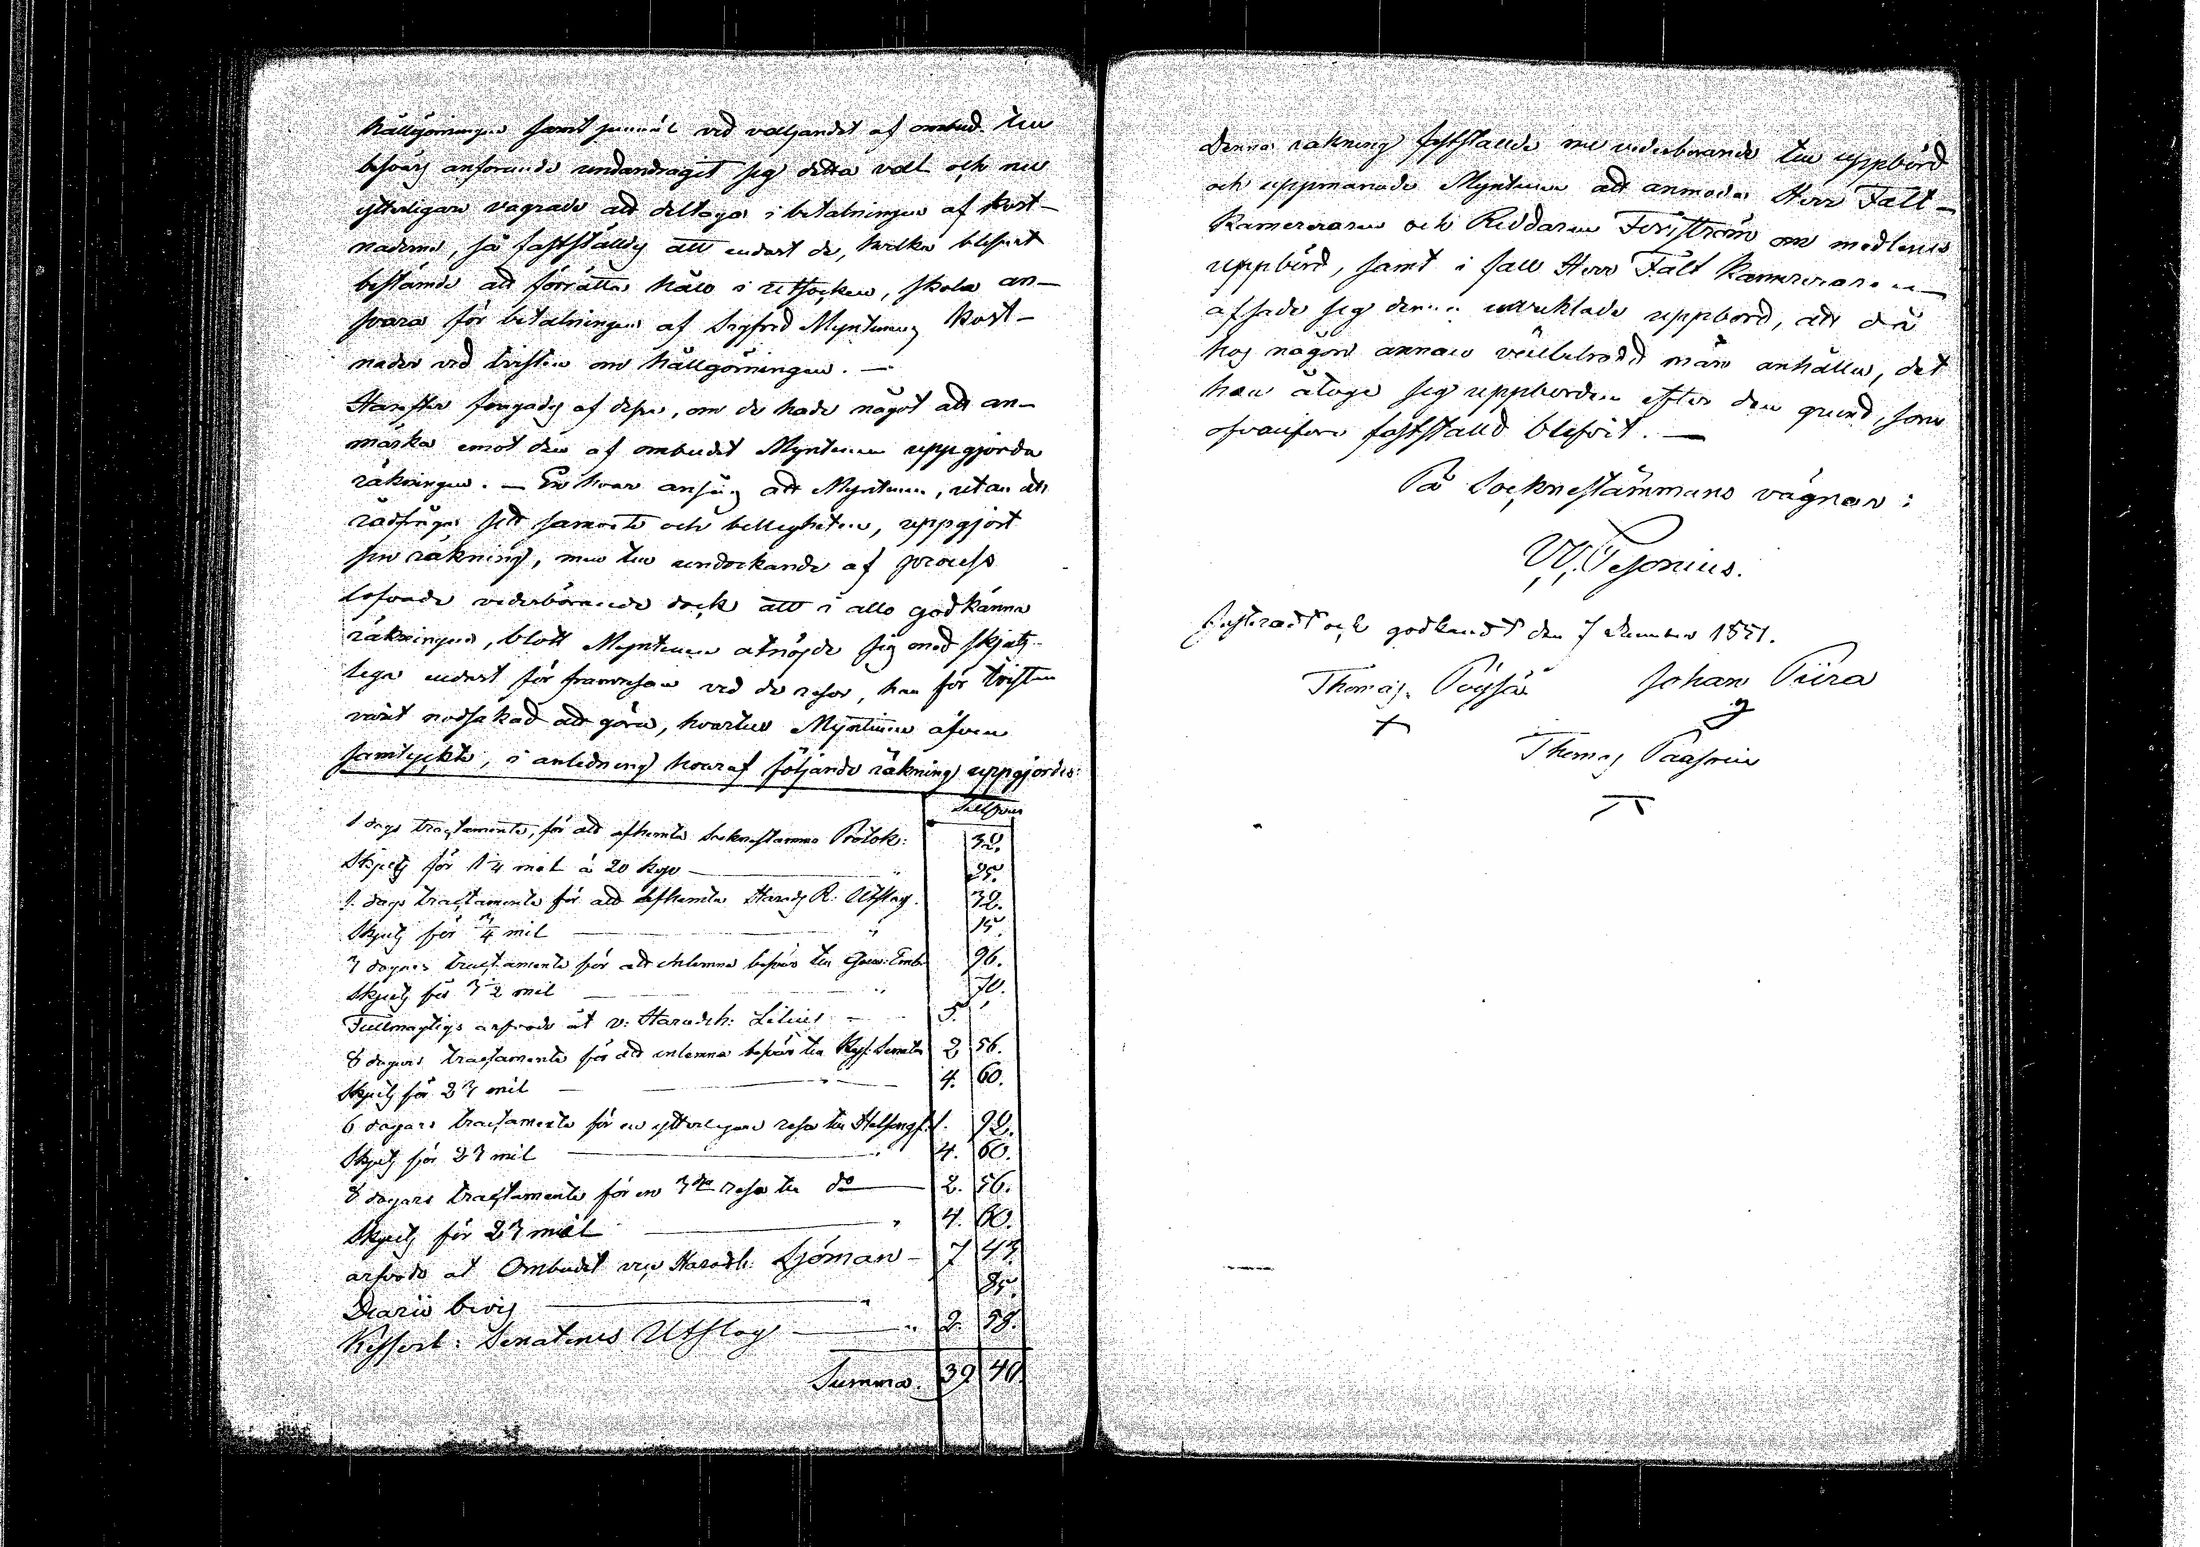 hållgörningen samt jemväl vid väljandet af ombud till
besvärs anförande undandragit sig detta val och nu
ytterligare vägrade att deltaga i betalningen af kost-
naderna, så fastställdes att endast de, hvilka blifvit
bestämde att förrätta håll i utsocken, skola an-
svara för betalningen af Sigfred Myntinens kost-
nader vid tvisten om hållgörningen. —
Härefter frågades af desse, om de hade något att an-
märka emot den af ombudet Myntinen uppgjorda
räkningen. — En hvar ansåg att Myntinen, utan att
rådfråga sitt samvete och billigheten, uppgjort
sin räkning, men till undvikande af process
lofvade vederbörande dock att i allo godkänna
räkningen, blott Myntinen åtnöjde sig med skjuts-
lega endast för framresan vid de resor, han för tvisten
varit nödsakad att göra, hvartill Myntinen äfven
samtyckte, i anledning hvaraf följande räkning uppgjordes:
Silfver
1 dags tractamente, för att afhemta Sockenstämmo Protok: 32.
Skjuts för 1 1/4 mil à 20 kop — " 25.
1 dags tractamente för att afhemta Härads R: Utslag. 32.
Skjuts för 3/4 mil — " 15.
3 dagars tractamente för att inlemna besvär till Guv: Emb: 96.
Skjuts för 3 1/2 mil — " 70.
Fullmägtigs arfvode åt v: Häradsh: Lilius — 5.
8 dagars tractamente för att inlemna besvär till Kejs: Senaten 2 56.
Skjuts för 23 mil — " — 4. 60.
6 dagars tractamente för en ytterligare resa till Helsingf: 1. 92.
Skjuts för 23 mil — " 4. 60.
8 dagars tractamente för en 3dje resa till do — 2. 56.
Skjuts för 23 mil — " 4. 60.
arfvode åt Ombudet vice Häradsh. Sjöman — 7 43
Diarii bevis — " 85.
Kejserl: Senatens Utslag — " 2. 58.
Summa. 39 40.
Denna räkning fastställde nu vederbörande till uppbörd
och uppmanade Myntinen att anmoda Herr Fält-
Kamereraren och Riddaren Toriström om medlens
uppbörd, samt i fall Herr Fält Kamereraren
afsade sig denna invecklade uppbörd, att då
hos någon annan välbetrodd man anhålla, det
han åtoge sig uppbörden efter den grund, som
ofvanföre fastställd blifvit. —
På Socknestämmans vägnar:
W. Pesonius.
Justeradt och godkändt den 7 december 1851.
Thomas Pöysä Johan Piira
Thomas Paasoin